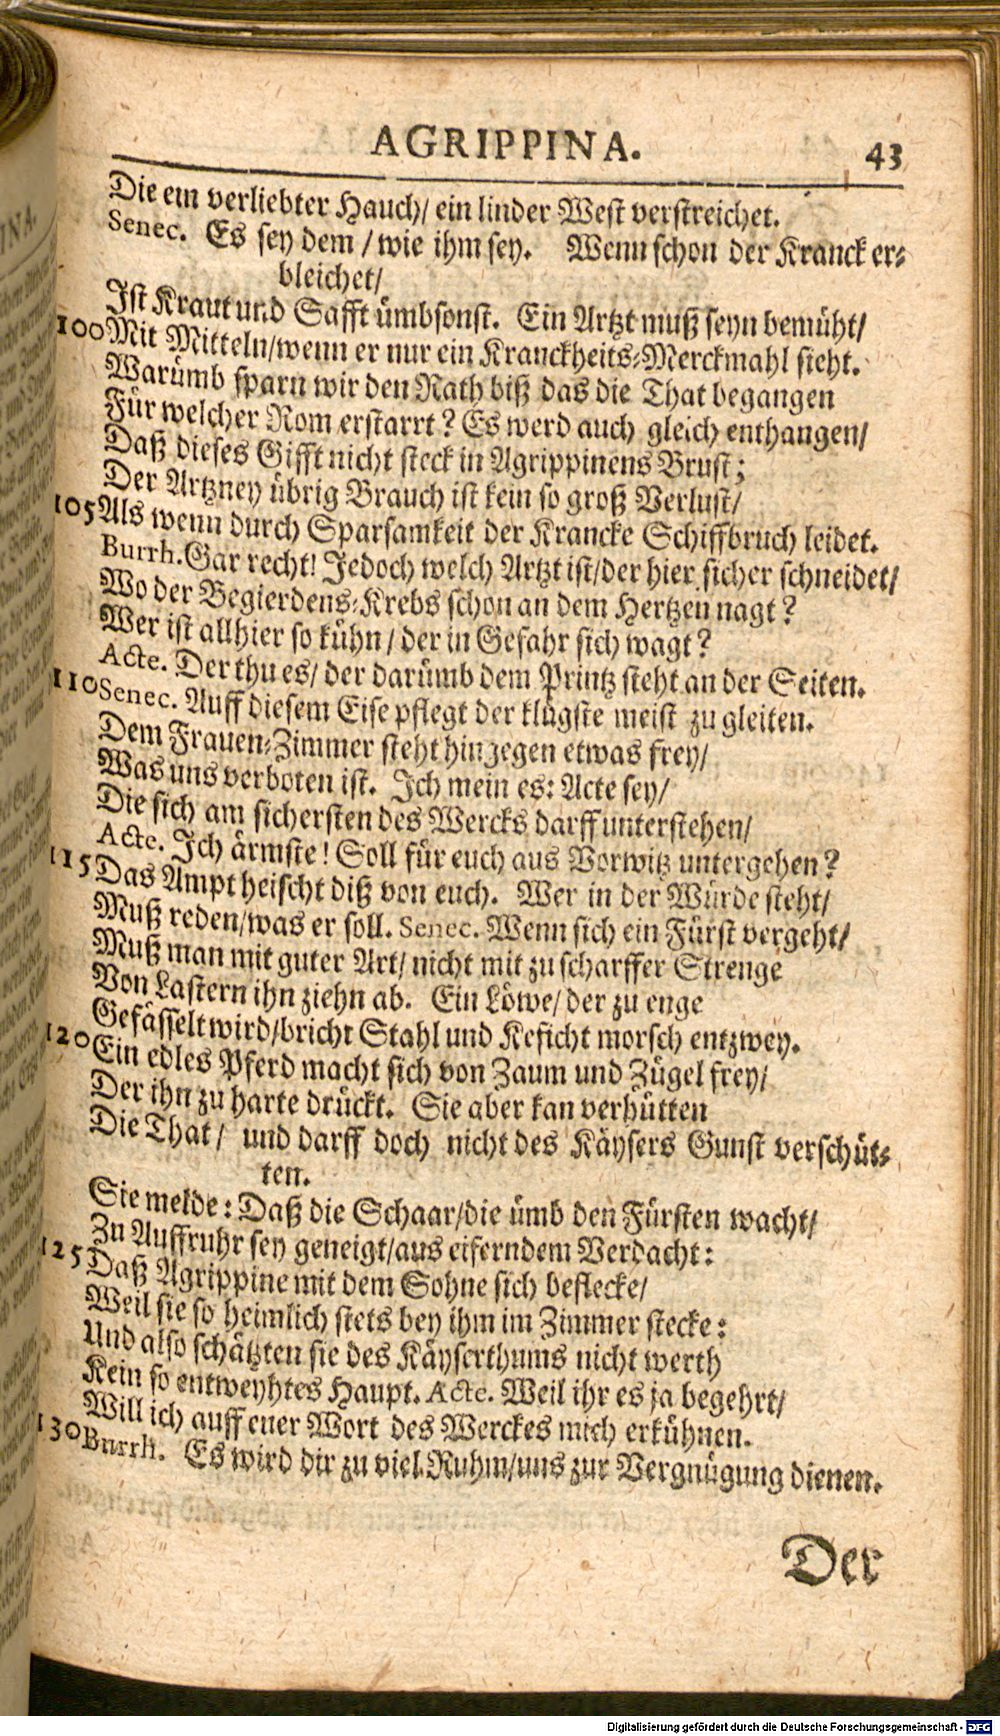 AGRIPPINA. 43
Die ein verliebter Hauch/ ein linder West verstreichet.
Senec. Es sey dem / wie ihm sey. Wenn schon der Kranck er-
bleichet/
Ist Kraut und Safft ümbsonst. Ein Artzt muß seyn bemüht/
100 Mit Mitteln/wenn er nur ein Kranckheits-Merckmahl sieht.
Warümb sparn wir den Rath biß das die That begangen
Für welcher Rom erstarrt? Es werd auch gleich enthangen/
Daß dieses Gifft nicht steck in Agrippinens Brust;
Der Artzney übrig Brauch ist kein so groß Verlust/
105 Als wenn durch Sparsamkeit der Krancke Schiffbruch leidet.
Burrh. Gar recht! Jedoch welch Artzt ist/der hier sicher schneidet/
Wo der Begierdens-Krebs schon an dem Hertzen nagt?
Wer ist allhier so kühn / der in Gefahr sich wagt?
Acte. Der thu es/ der darümb dem Printz steht an der Seiten.
110 Senec. Auff diesem Eise pflegt der klügste meist zu gleiten.
Dem Frauen-Zimmer steht hingegen etwas frey/
Was uns verboten ist. Ich mein es: Acte sey/
Die sich am sichersten des Wercks darff unterstehen/
Acte. Ich ärmste! Soll für euch aus Vorwitz untergehen?
115 Das Ampt heischt diß von euch. Wer in der Würde steht/
Muß reden/was er soll. Senec. Wenn sich ein Fürst vergeht/
Muß man mit guter Art/ nicht mit zu scharffer Strenge
Von Lastern ihn ziehn ab. Ein Löwe/ der zu enge
Gefässelt wird/bricht Stahl und Keficht morsch entzwey.
120 Ein edles Pferd macht sich von Zaum und Zügel frey/
Der ihn zu harte drückt. Sie aber kan verhütten
Die That / und darff doch nicht des Käysers Gunst verschüt-
ten.
Sie melde: Daß die Schaar/die ümb den Fürsten wacht/
Zu Auffruhr sey geneigt/aus eiferndem Verdacht:
125 Daß Agrippine mit dem Sohne sich beflecke/
Weil sie so heimlich stets bey ihm im Zimmer stecke:
Und also schätzten sie des Käyserthums nicht werth
Kein so entweyhtes Haupt. Acte. Weil ihr es ja begehrt/
Will ich auff euer Wort des Werckes mich erkühnen.
130 Burrh. Es wird dir zu viel Ruhm/uns zur Vergnügung dienen.
Der
Digitalisierung gefördert durch die Deutsche Forschungsgemeinschaft - DFG